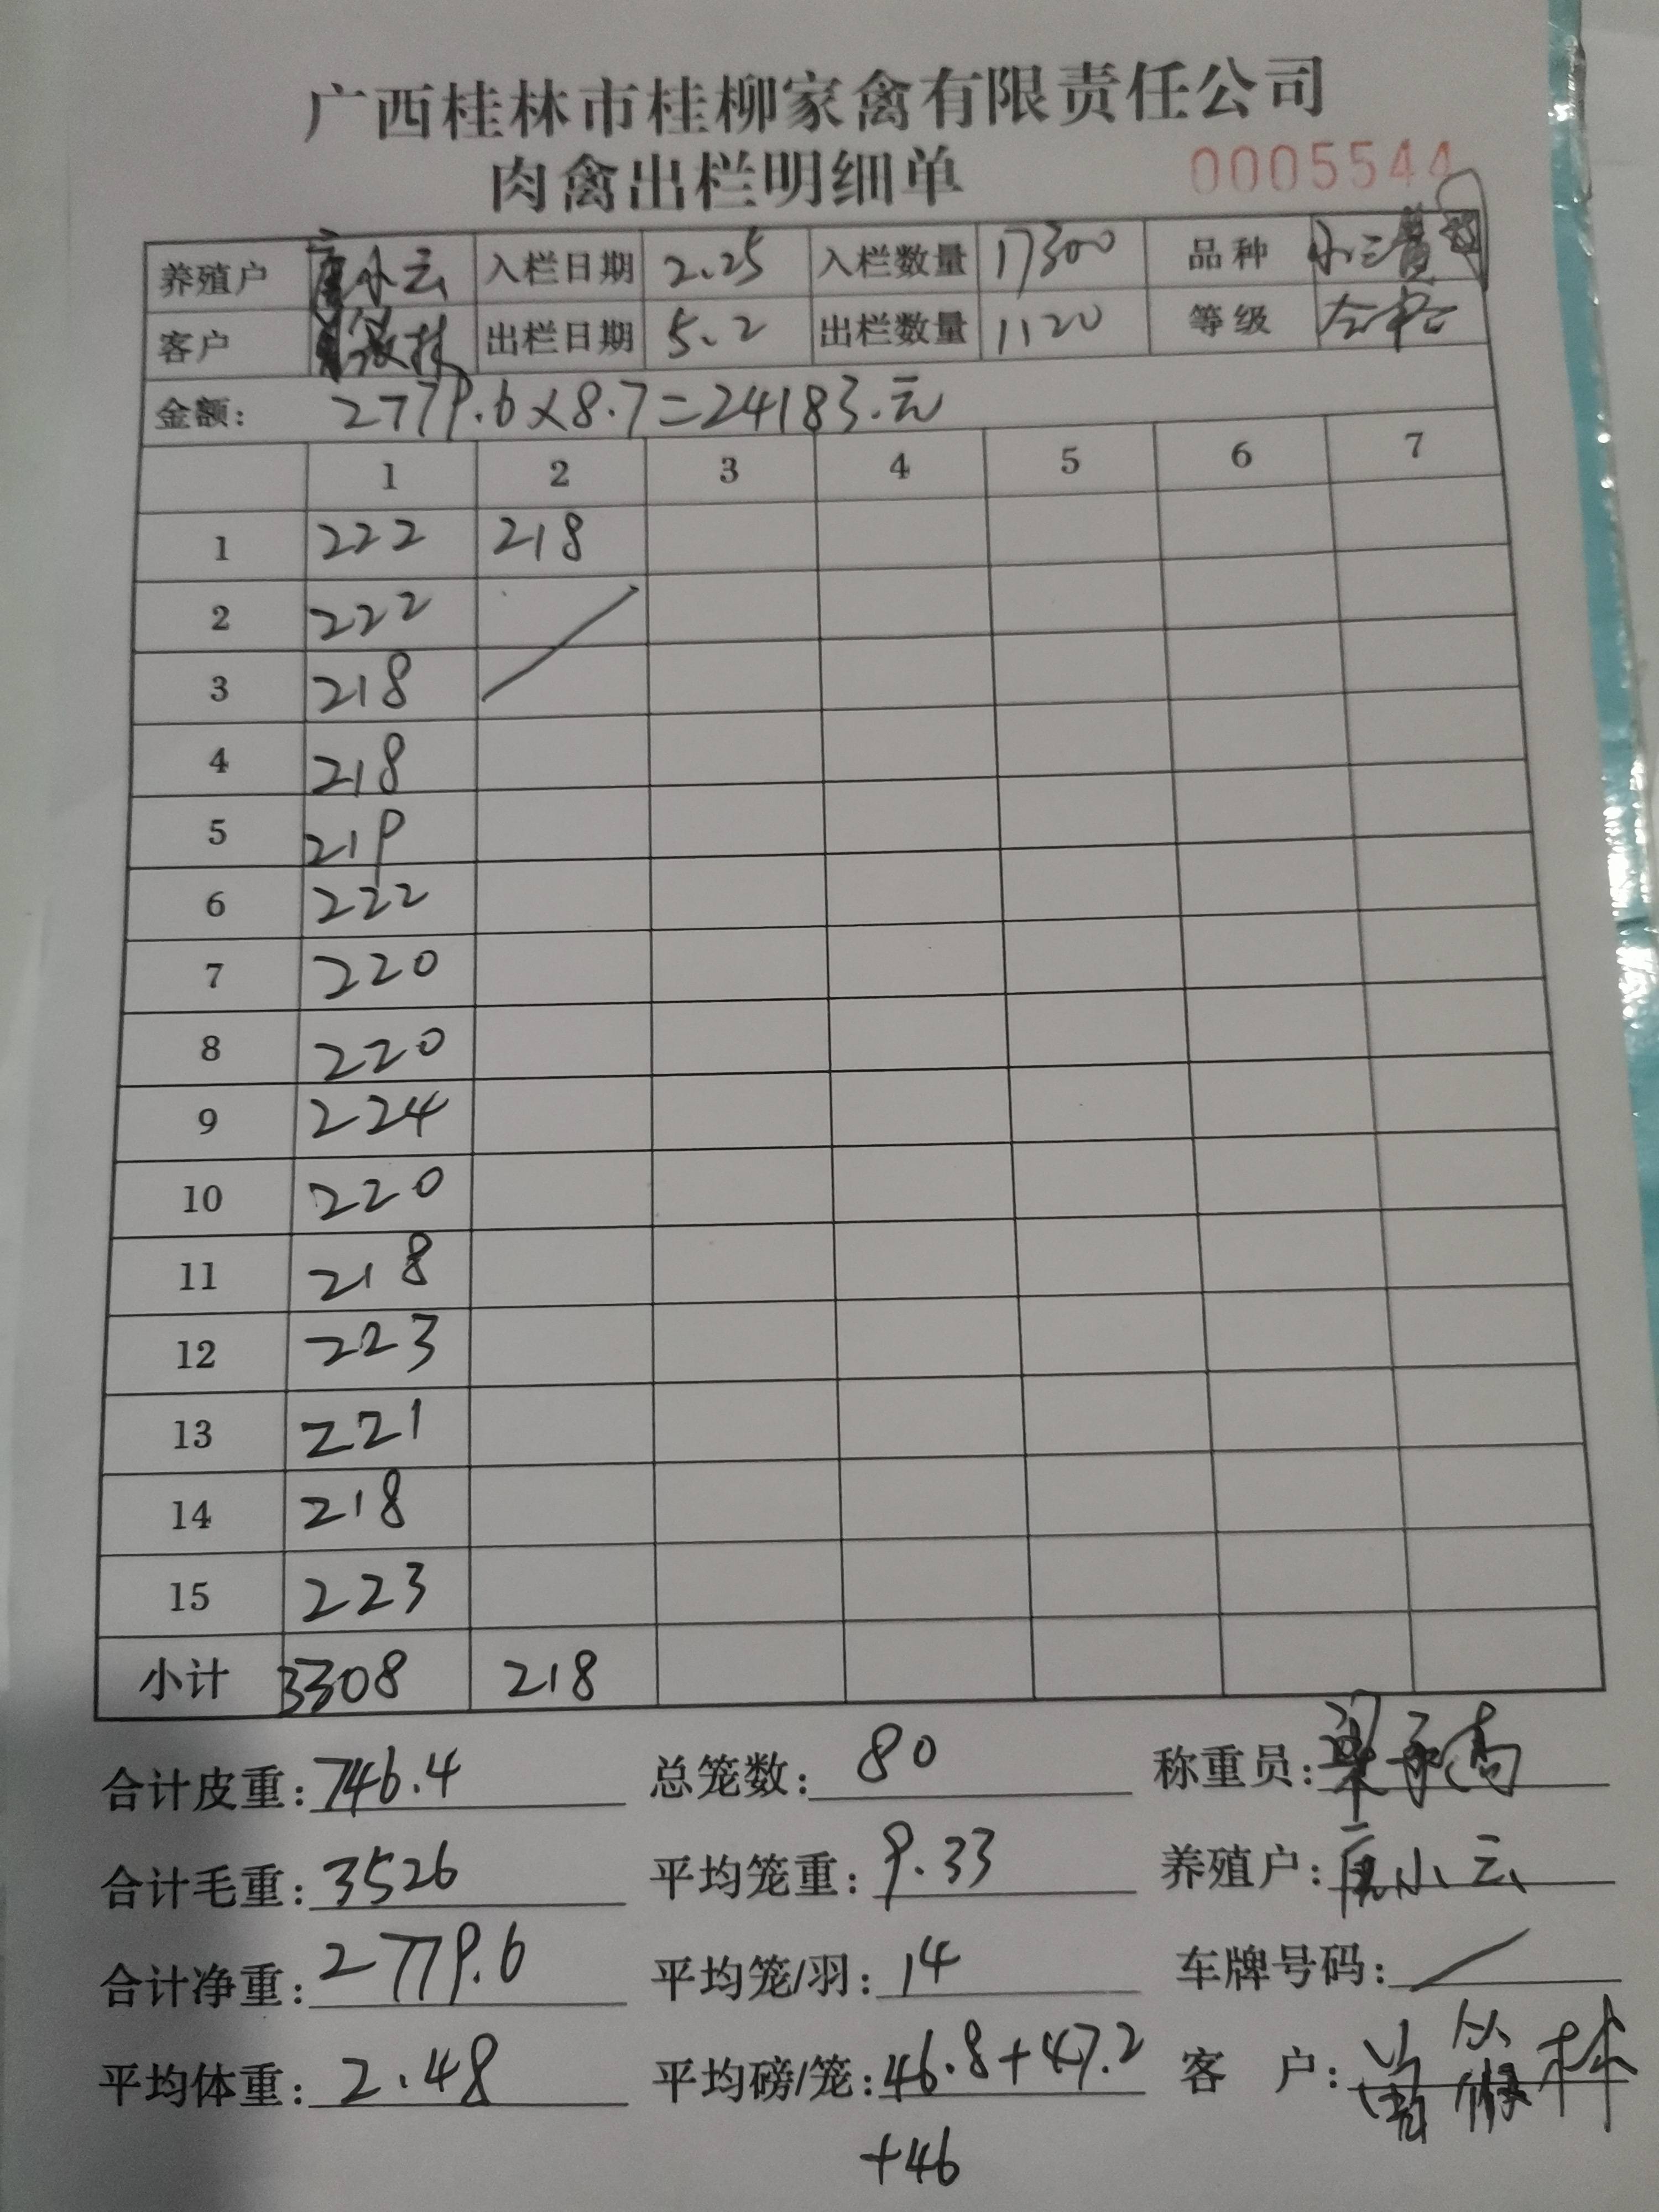 广西桂林市桂柳家禽有限责任公司
肉禽出栏明细单 0005544
养殖户 小云 入栏日期 2.25 入栏数量 17300 品种 小三黄
客户 林 出栏日期 5.2 出栏数量 1120 等级
金额: 2779.6×8.7=24183.元
1 2 3 4 5 6 7
1 222 218
2 222
3 218
4 218
5 219
6 222
7 220
8 220
9 224
10 220
11 218
12 223
13 221
14 218
15 223
小计 3308 218
合计皮重: 746.4 总笼数: 80 称重员: 梁
合计毛重: 3526 平均笼重: 9.33 养殖户: 小云
合计净重: 2779.6 平均笼/羽: 14 车牌号码:
平均体重: 2.48 平均磅/笼: 46.8+47.2 客 户: 林
+46